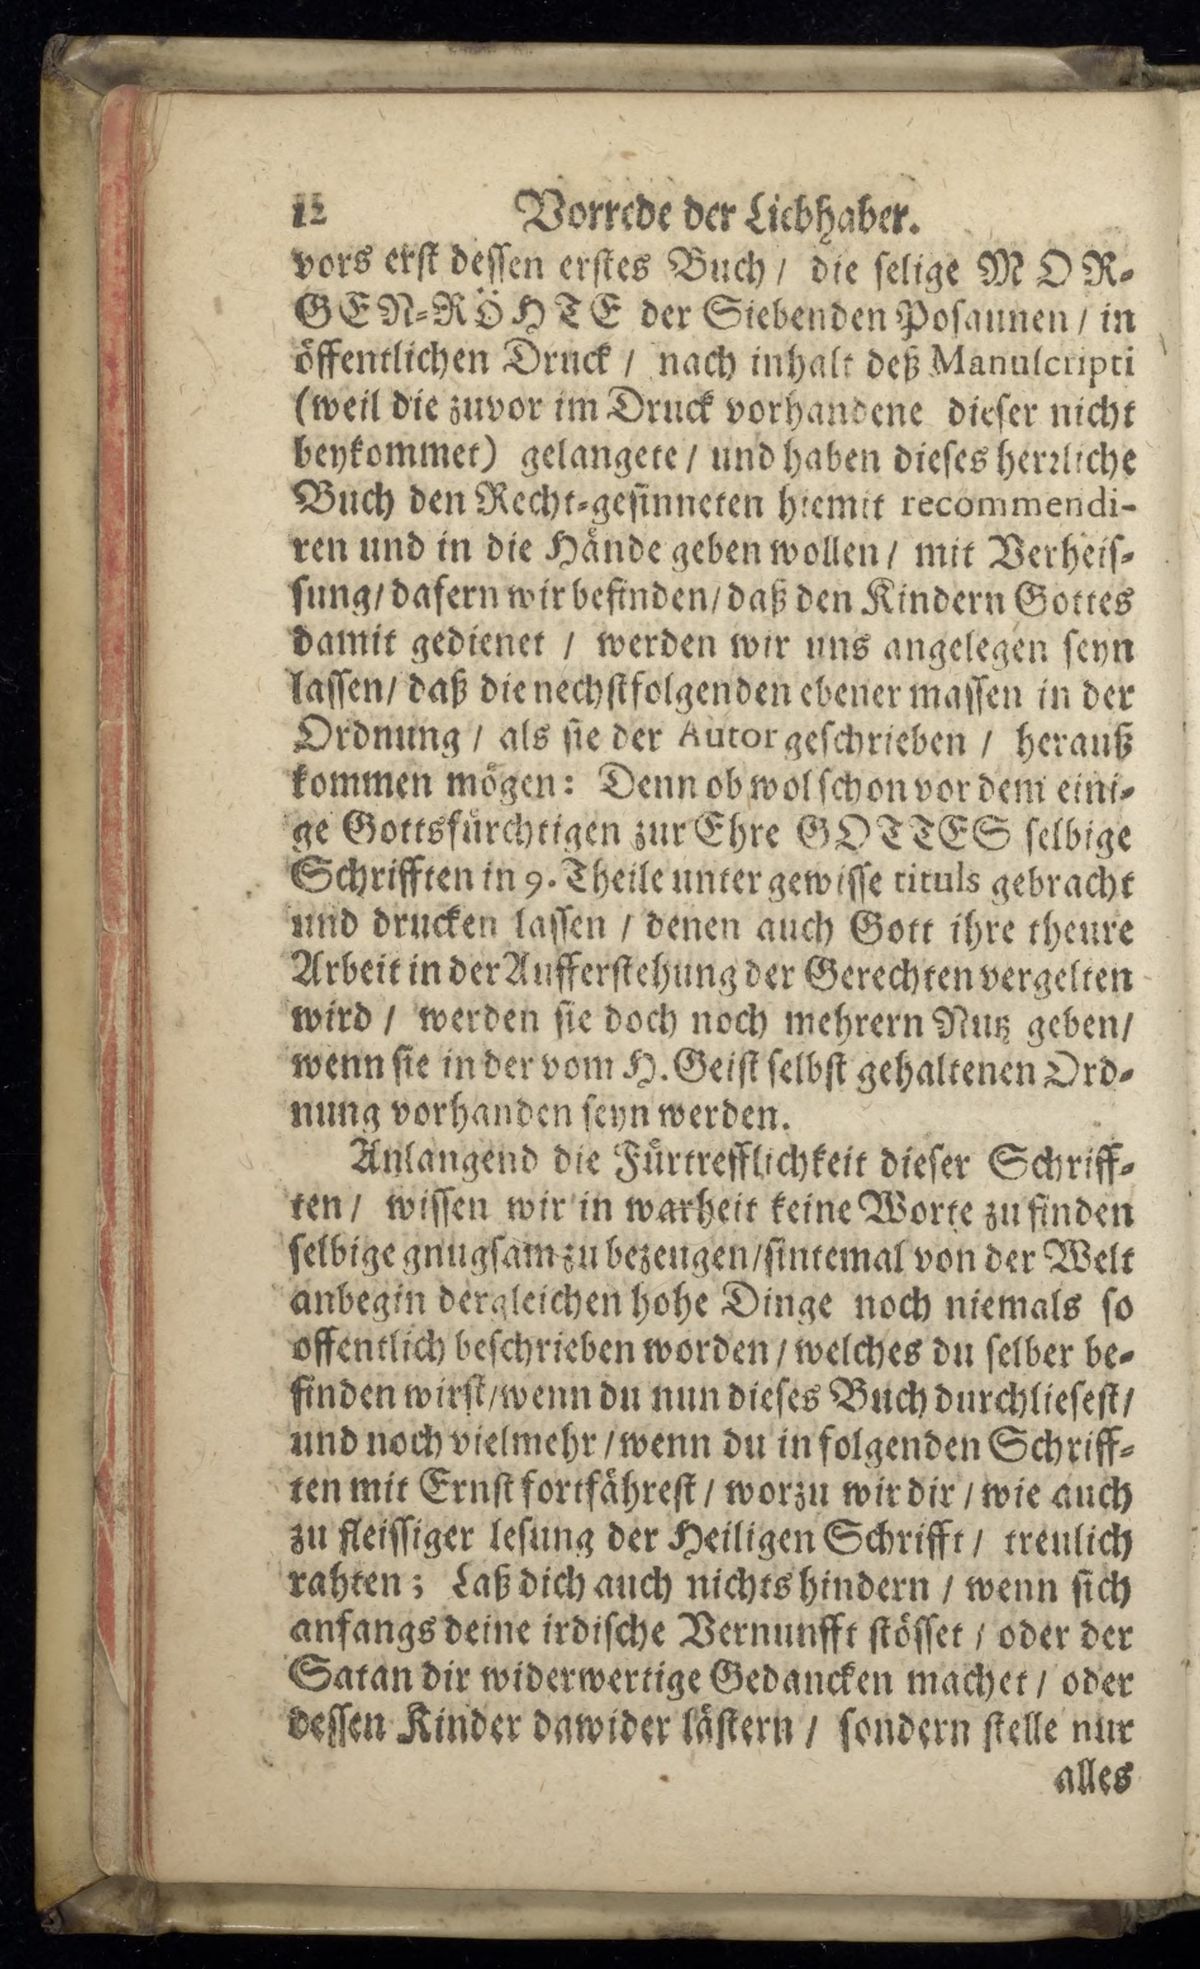 12 Vorrede der Liebhaber.
vors erst dessen erstes Buch / die selige MOR-
GEN-RÖHTE der Siebenden Posaunen / in
öffentlichen Druck / nach inhalt deß Manuscripti
(weil die zuvor im Druck vorhandene dieser nicht
beykommet) gelangete / und haben dieses herrliche
Buch den Recht-gesinneten hiemit recommendi-
ren und in die Hände geben wollen / mit Verheis-
sung / dafern wir befinden / daß den Kindern Gottes
damit gedienet / werden wir uns angelegen seyn
lassen / daß die nechstfolgenden ebener massen in der
Ordnung / als sie der Autor geschrieben / herauß
kommen mögen: Denn ob wol schon vor dem eini-
ge Gottsfürchtigen zur Ehre GOTTES selbige
Schrifften in 9. Theile unter gewisse tituls gebracht
und drucken lassen / denen auch Gott ihre theure
Arbeit in der Aufferstehung der Gerechten vergelten
wird / werden sie doch noch mehrern Nutz geben /
wenn sie in der vom H. Geist selbst gehaltenen Ord-
nung vorhanden seyn werden.
Anlangend die Fürtrefflichkeit dieser Schriff-
ten / wissen wir in warheit keine Worte zu finden
selbige gnugsam zu bezeugen / sintemal von der Welt
anbegin dergleichen hohe Dinge noch niemals so
offentlich beschrieben worden / welches du selber be-
finden wirst / wenn du nun dieses Buch durchliesest /
und noch vielmehr / wenn du in folgenden Schriff-
ten mit Ernst fortfährest / worzu wir dir / wie auch
zu fleissiger lesung der Heiligen Schrifft / treulich
rahten; Laß dich auch nichts hindern / wenn sich
anfangs deine irdische Vernunfft stösset / oder der
Satan dir widerwertige Gedancken machet / oder
dessen Kinder dawider lästern / sondern stelle nur
alles